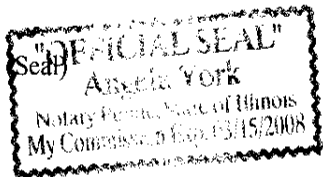 "OFFICIAL SEAL"
Seal)
Angela York
Notary Public, State of Illinois
My Commission Exp. 03/15/2008